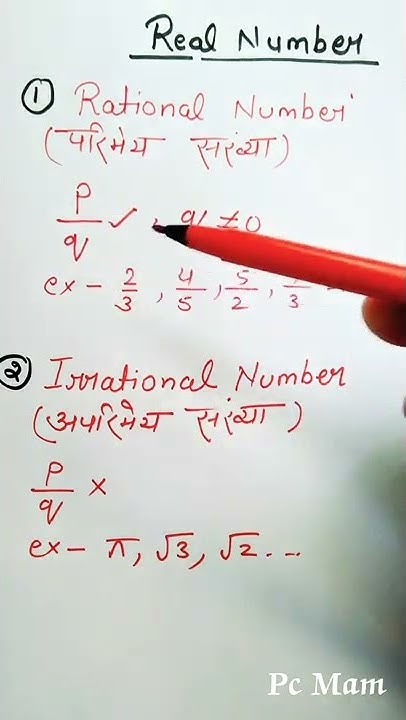 Real Number
① Rational Number
(परिमेय संख्या)
p/q ✓, q ≠ 0
ex - 2/3, 4/5, 5/2,
② Irrational Number
(अपरिमेय संख्या)
p/q ×
ex - π, √3, √2...
Pc Mam